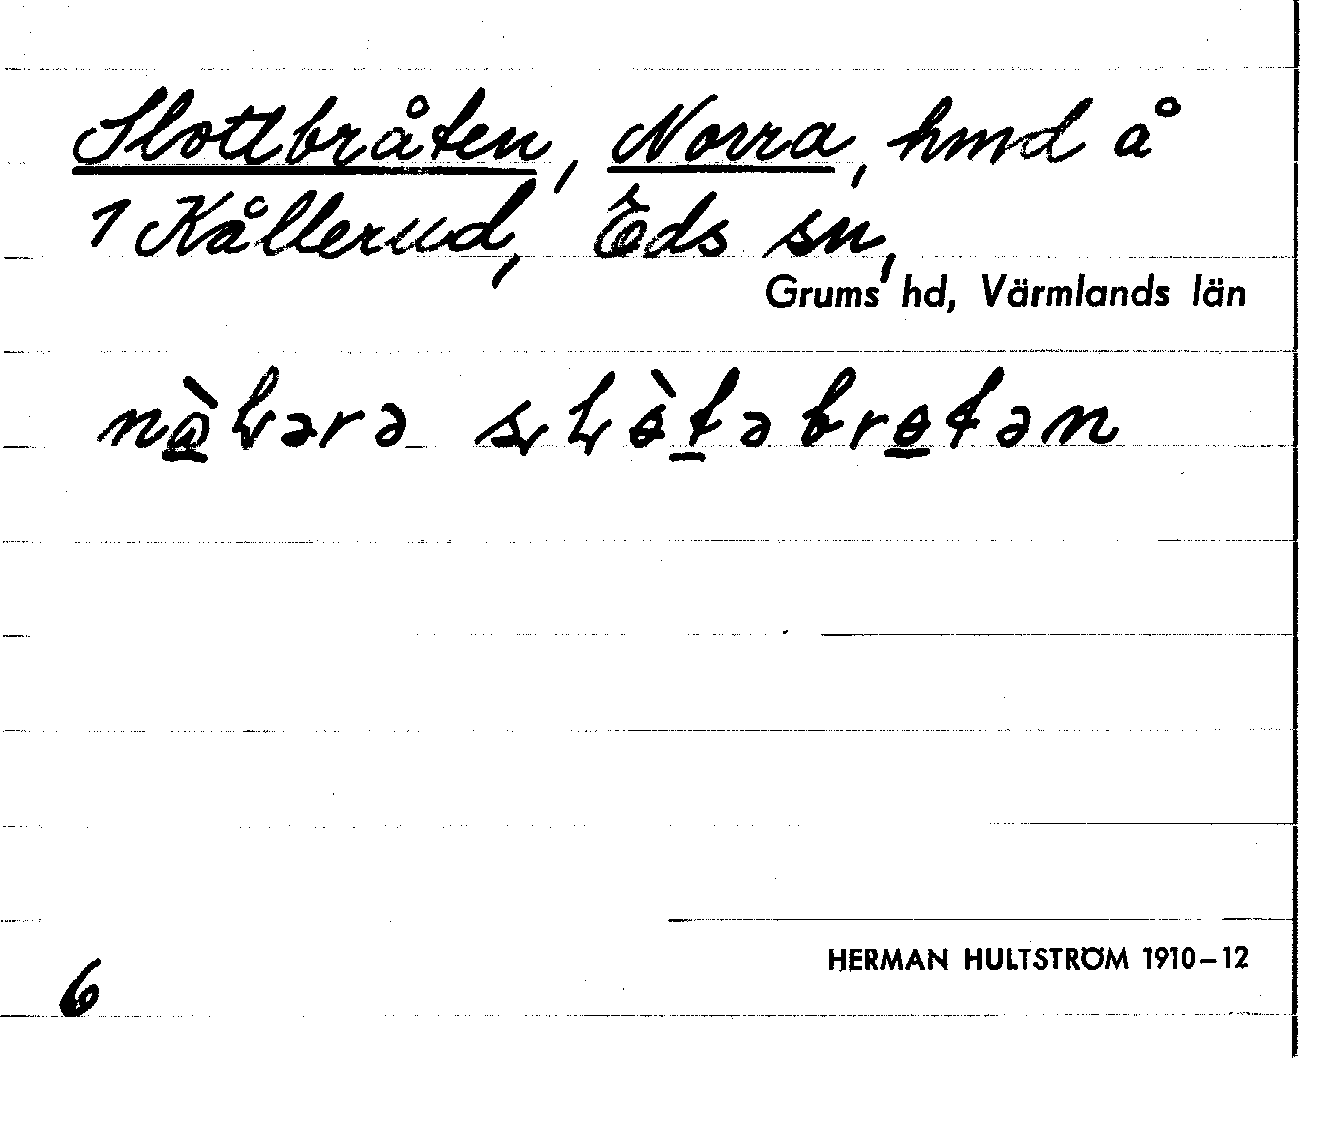 Slottbråten, Norra, hmd å
1 Kållerud, Eds sn,
Grums hd, Värmlands län
HERMAN HULTSTRÖM 1910–12
6